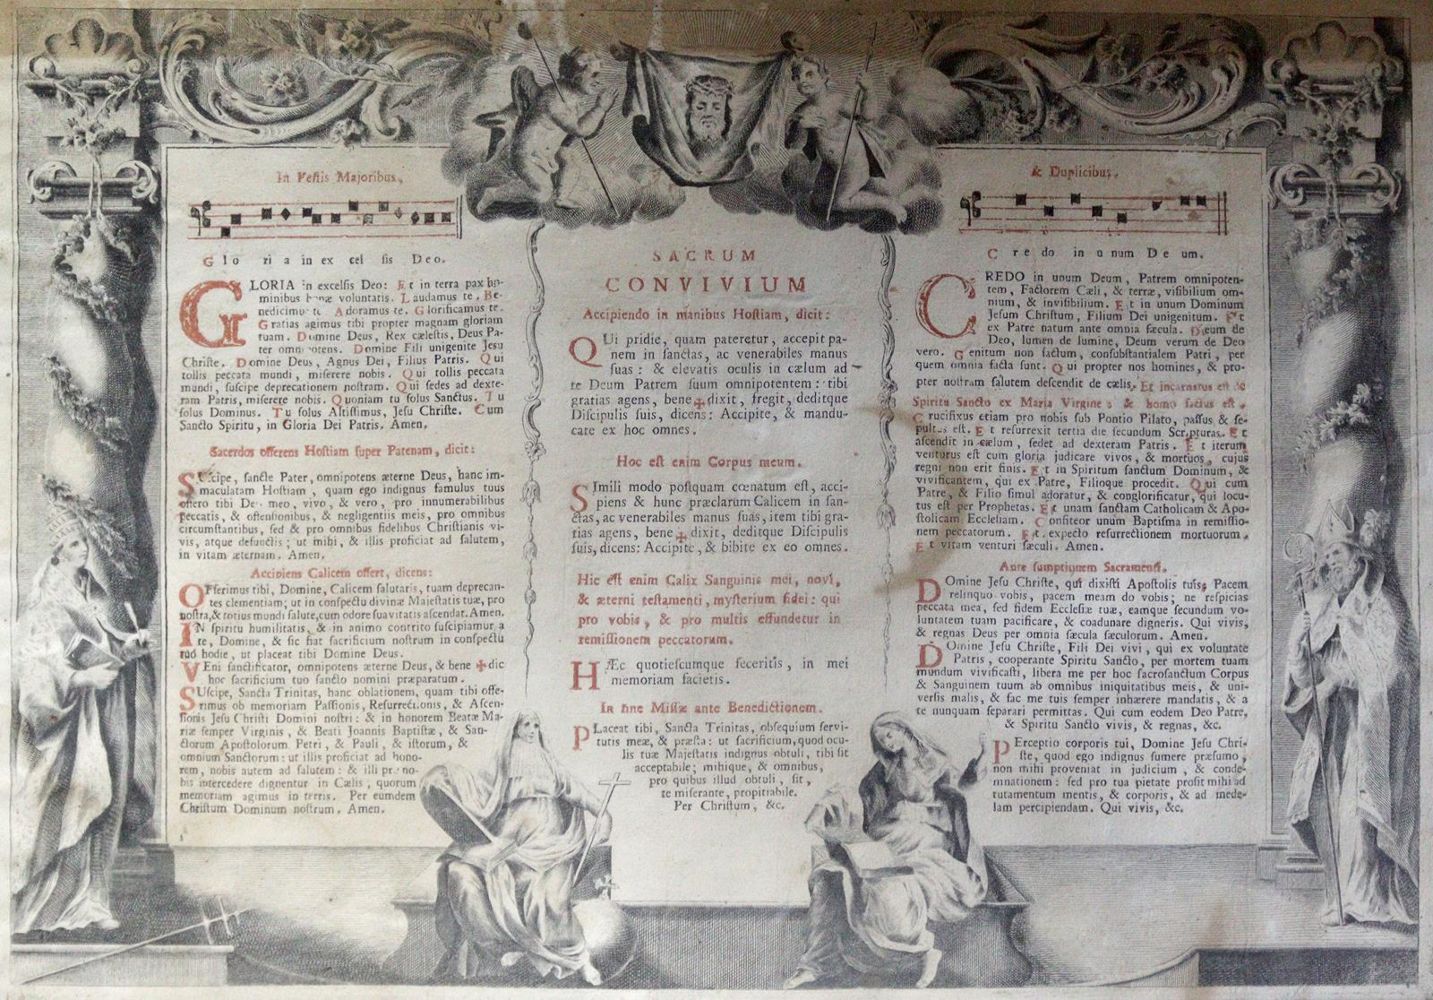 In Festis Majoribus,
Glo ri a in ex cel sis Deo.
GLORIA in excelsis Deo: Et in terra pax ho-
minibus bonæ voluntatis. Laudamus te. Be-
nedicimus te. Adoramus te. Glorificamus te.
Gratias agimus tibi propter magnam gloriam
tuam. Domine Deus, Rex cælestis, Deus Pa-
ter omnipotens. Domine Fili unigenite Jesu
Christe. Domine Deus, Agnus Dei, Filius Patris. Qui
tollis peccata mundi, miserere nobis. Qui tollis peccata
mundi, suscipe deprecationem nostram. Qui sedes ad dexte-
ram Patris, miserere nobis. Quoniam tu solus Sanctus. Tu
solus Dominus. Tu solus Altissimus, Jesu Christe. Cum
Sancto Spiritu, in Gloria Dei Patris. Amen.
Sacerdos offerens Hostiam super Patenam, dicit:
SUscipe, sancte Pater, omnipotens æterne Deus, hanc im-
maculatam Hostiam, quam ego indignus famulus tuus
offero tibi Deo meo, vivo, & vero, pro innumerabilibus
peccatis, & offensionibus, & negligentiis meis, pro omnibus
circumstantibus, sed & pro omnibus fidelibus Christianis vi-
vis, atque defunctis; ut mihi, & illis proficiat ad salutem,
in vitam æternam. Amen.
Accipiens Calicem offert, dicens:
OFferimus tibi, Domine, Calicem salutaris, tuam deprecan-
tes clementiam; ut in conspectu divinæ Majestatis tuæ, pro
nostra, & totius mundi salute, cum odore suavitatis ascendat. Amen.
IN spiritu humilitatis, & in animo contrito suscipiamur a
te, Domine, & sic fiat sacrificium nostrum in conspectu
tuo hodie, ut placeat tibi Domine Deus.
VEni sanctificator, omnipotens æterne Deus, & bene ✠ dic
hoc sacrificium tuo sancto nomini præparatum.
SUscipe, Sancta Trinitas, hanc oblationem, quam tibi offe-
rimus ob memoriam Passionis, Resurrectionis, & Ascen-
sionis Jesu Christi Domini nostri: & in honorem Beatæ Ma-
riæ semper Virginis, & Beati Joannis Baptistæ, & San-
ctorum Apostolorum Petri, & Pauli, & istorum, &
omnium Sanctorum: ut illis proficiat ad hono-
rem, nobis autem ad salutem: & illi pro no-
bis intercedere dignentur in Cælis, quorum
memoriam agimus in terris. Per eumdem
Christum Dominum nostrum. Amen.
SACRUM
CONVIVIUM
Accipiendo in manibus Hostiam, dicit:
QUi pridie, quam pateretur, accepit pa-
nem in sanctas, ac venerabiles manus
suas: & elevatis oculis in cælum ad
te Deum Patrem suum omnipotentem: tibi
gratias agens, bene✠dixit, fregit, deditque
Discipulis suis, dicens: Accipite, & mandu-
cate ex hoc omnes.
Hoc est enim Corpus meum.
SImili modo postquam cœnatum est, acci-
piens & hunc præclarum Calicem in san-
ctas, ac venerabiles manus suas, item tibi gra-
tias agens, bene✠dixit, deditque Discipulis
suis, dicens: Accipite, & bibite ex eo omnes.
Hic est enim Calix Sanguinis mei, novi,
& æterni testamenti, mysterium fidei: qui
pro vobis, & pro multis effundetur in
remissionem peccatorum.
HÆc quotiescumque feceritis, in mei
memoriam facietis.
In fine Missæ ante Benedictionem.
PLaceat tibi, Sancta Trinitas, obsequium servi-
tutis meæ, & præsta: ut sacrificium, quod ocu-
lis tuæ Majestatis indignus obtuli, tibi sit
acceptabile; mihique, & omnibus,
pro quibus illud obtuli, sit,
te miserante, propitiabile.
Per Christum, &c.
& Duplicibus.
Credo in unum Deum.
CREDO in unum Deum, Patrem omnipoten-
tem, Factorem Cæli, & terræ, visibilium om-
nium, & invisibilium. Et in unum Dominum
Jesum Christum, Filium Dei unigenitum. Et
ex Patre natum ante omnia sæcula. Deum de
Deo, lumen de lumine, Deum verum de Deo
vero. Genitum non factum, consubstantialem Patri, per
quem omnia facta sunt. Qui propter nos homines, & pro-
pter nostram salutem descendit de cælis. Et incarnatus est de
Spiritu Sancto ex Maria Virgine: & homo factus est.
Crucifixus etiam pro nobis sub Pontio Pilato, passus & se-
pultus est. Et resurrexit tertia die secundum Scripturas. Et
ascendit in cælum, sedet ad dexteram Patris. Et iterum
venturus est cum gloria judicare vivos, & mortuos, cujus
regni non erit finis. Et in Spiritum sanctum Dominum, &
vivificantem, qui ex Patre, Filioque procedit. Qui cum
Patre, & Filio simul adoratur, & conglorificatur, qui locu-
tus est per Prophetas. Et unam sanctam Catholicam & Apo-
stolicam Ecclesiam. Confiteor unum Baptisma in remissio-
nem peccatorum. Et expecto resurrectionem mortuorum.
Et vitam venturi sæculi. Amen.
Ante sumptionem Sacramenti.
DOmine Jesu Christe, qui dixisti Apostolis tuis, Pacem
relinquo vobis, pacem meam do vobis; ne respicias
peccata mea, sed fidem Ecclesiæ tuæ, eamque secundum vo-
luntatem tuam pacificare, & coadunare digneris. Qui vivis,
& regnas Deus per omnia sæcula sæculorum. Amen.
DOmine Jesu Christe, Fili Dei vivi, qui ex voluntate
Patris, cooperante Spiritu Sancto, per mortem tuam
mundum vivificasti, libera me per hoc sacrosanctum Corpus
& Sanguinem tuum ab omnibus iniquitatibus meis, & uni-
versis malis, & fac me tuis semper inhærere mandatis, & a
te nunquam separari permittas. Qui cum eodem Deo Patre,
& Spiritu Sancto vivis, & regnas, &c.
PErceptio corporis tui, Domine Jesu Chri-
ste, quod ego indignus sumere præsumo,
non mihi proveniat in judicium, & conde-
mnationem: sed pro tua pietate prosit mihi ad
tutamentum mentis, & corporis, & ad mede-
lam percipiendam. Qui vivis, &c.